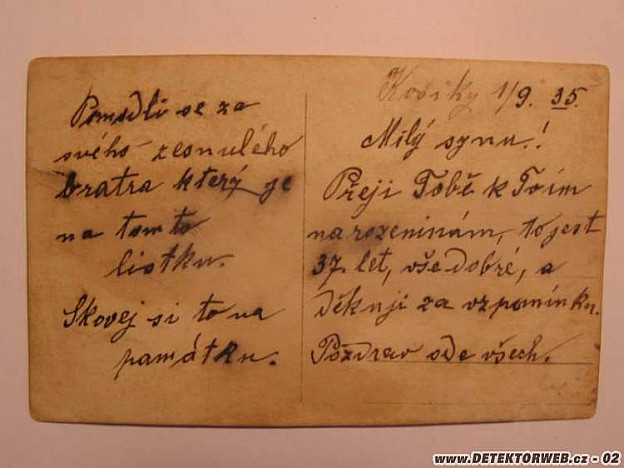 Pomodli se za
svého zesnulého
bratra který je
na tom to
lístku.
Skovej si to na
památku.
Košíky 1/9. 35.
Milý synu!
Přeji Tobě k Tvím
narozeninám, to jest
37. let, vše dobré, a
děkuji za vzpomínku.
Pozdrav ode všech.
www.DETEKTORWEB.cz - 02